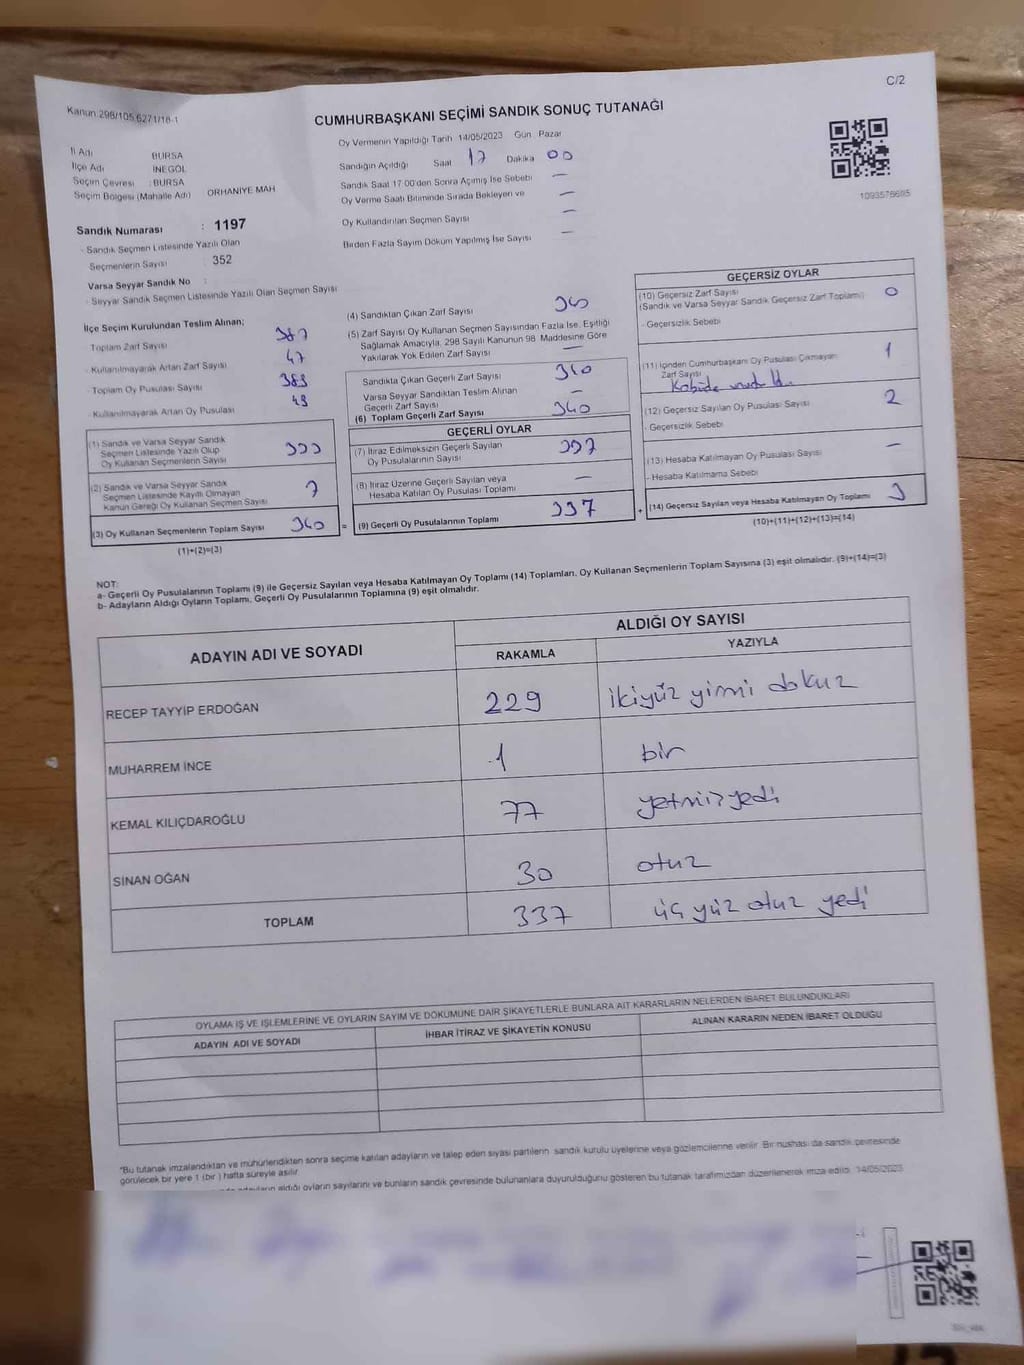 C/2
Kanun:298/105,6271/18-1
CUMHURBAŞKANI SEÇİMİ SANDIK SONUÇ TUTANAĞI
İl Adı BURSA
İlçe Adı İNEGÖL
Seçim Çevresi : BURSA
Seçim Bölgesi (Mahalle Adı) ORHANİYE MAH
Sandık Numarası : 1197
- Sandık Seçmen Listesinde Yazılı Olan
Seçmenlerin Sayısı 352
Varsa Seyyar Sandık No :
- Seyyar Sandık Seçmen Listesinde Yazılı Olan Seçmen Sayısı
Oy Vermenin Yapıldığı Tarih 14/05/2023 Gün : Pazar
Sandığın Açıldığı Saat 17 Dakika 00
Sandık Saat 17:00'den Sonra Açımış İse Sebebi —
Oy Verme Saati Bitiminde Sırada Bekleyen ve —
Oy Kullandırılan Seçmen Sayısı —
Birden Fazla Sayım Döküm Yapılmış İse Sayısı —
1093576695
İlçe Seçim Kurulundan Teslim Alınan;
Toplam Zarf Sayısı 387
- Kullanılmayarak Artan Zarf Sayısı 47
- Toplam Oy Pusulası Sayısı 383
- Kullanılmayarak Artan Oy Pusulası 43
(1) Sandık ve Varsa Seyyar Sandık
Seçmen Listesinde Yazılı Olup
Oy Kullanan Seçmenlerin Sayısı 333
(2) Sandık ve Varsa Seyyar Sandık
Seçmen Listesinde Kayıtlı Olmayan
Kanun Gereği Oy Kullanan Seçmen Sayısı 7
(3) Oy Kullanan Seçmenlerin Toplam Sayısı 340 =
(1)+(2)=(3)
(4) Sandıktan Çıkan Zarf Sayısı 340
(5) Zarf Sayısı Oy Kullanan Seçmen Sayısından Fazla İse, Eşitliği
Sağlamak Amacıyla, 298 Sayılı Kanunun 98. Maddesine Göre
Yakılarak Yok Edilen Zarf Sayısı —
Sandıkta Çıkan Geçerli Zarf Sayısı 340
Varsa Seyyar Sandıktan Teslim Alınan
Geçerli Zarf Sayısı —
(6) Toplam Geçerli Zarf Sayısı 340
GEÇERLİ OYLAR
(7) İtiraz Edilmeksizin Geçerli Sayılan
Oy Pusulalarının Sayısı 337
(8) İtiraz Üzerine Geçerli Sayılan veya
Hesaba Katılan Oy Pusulası Toplamı —
(9) Geçerli Oy Pusulalarının Toplamı 337 +
GEÇERSİZ OYLAR
(10) Geçersiz Zarf Sayısı
(Sandık ve Varsa Seyyar Sandık Geçersiz Zarf Toplamı) 0
- Geçersizlik Sebebi
(11) İçinden Cumhurbaşkanı Oy Pusulası Çıkmayan
Zarf Sayısı 1
(12) Geçersiz Sayılan Oy Pusulası Sayısı 2
- Geçersizlik Sebebi
(13) Hesaba Katılmayan Oy Pusulası Sayısı —
- Hesaba Katılmama Sebebi
(14) Geçersiz Sayılan veya Hesaba Katılmayan Oy Toplamı 3
(10)+(11)+(12)+(13)=(14)
NOT:
a- Geçerli Oy Pusulalarının Toplamı (9) ile Geçersiz Sayılan veya Hesaba Katılmayan Oy Toplamı (14) Toplamları, Oy Kullanan Seçmenlerin Toplam Sayısına (3) eşit olmalıdır. (9)+(14)=(3)
b- Adayların Aldığı Oyların Toplamı, Geçerli Oy Pusulalarının Toplamına (9) eşit olmalıdır.
ADAYIN ADI VE SOYADI ALDIĞI OY SAYISI
RAKAMLA YAZIYLA
RECEP TAYYİP ERDOĞAN 229 ikiyüz yirmi dokuz
MUHARREM İNCE 1 bir
KEMAL KILIÇDAROĞLU 77 yetmişyedi
SİNAN OĞAN 30 otuz
TOPLAM 337 üç yüz otuz yedi
OYLAMA İŞ VE İŞLEMLERİNE VE OYLARIN SAYIM VE DÖKÜMÜNE DAİR ŞİKAYETLERLE BUNLARA AİT KARARLARIN NELERDEN İBARET BULUNDUKLARI
ADAYIN ADI VE SOYADI İHBAR İTİRAZ VE ŞİKAYETİN KONUSU ALINAN KARARIN NEDEN İBARET OLDUĞU
"Bu tutanak imzalandıktan ve mühürlendikten sonra seçime katılan adayların ve talep eden siyasi partilerin sandık kurulu üyelerine veya gözlemcilerine verilir. Bir nüshası da sandık çevresinde
görülecek bir yere 1 (bir ) hafta süreyle asılır.
adayların aldığı oyların sayılarını ve bunların sandık çevresinde bulunanlara duyurulduğunu gösteren bu tutanak tarafımızdan düzenlenerek imza edildi. 14/05/2023